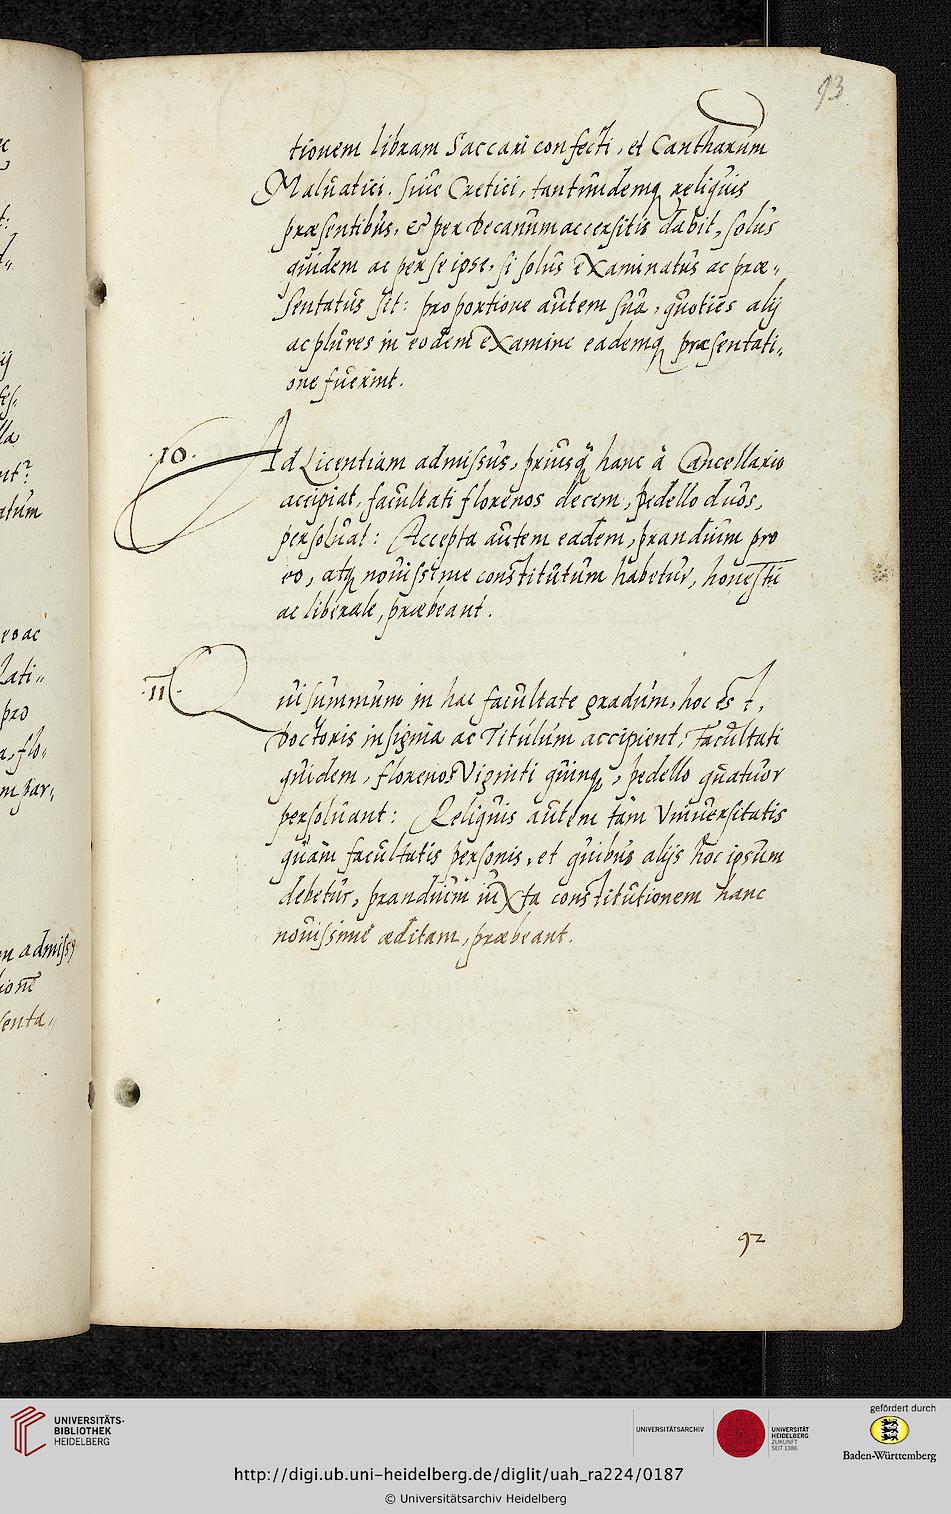 93
tionem libram Saccari confecti, et Cantharum
Maluatici. siue Cretici, tantundemq reliquis
præsentibus, & per Decanum accersitis dabit, solus
quidem ac per se ipse, si solus eXaminatus ac præ„
sentatus sit: proportione autem sua, quoties alij
ac plures in eodem eXamine eademq præsentati„
one fuerint.
.10. Ad Licentiam admissus, priusq̃ hanc à Cancellario
accipiat, facultati florenos decem, pedello duos,
persoluat: Accepta autem eadem, prandium pro
eo, atq nouissime constitutum habetur, honestū
ac liberale, præbeant.
.11. Qui summum in hac facultate gradum, hoc est,
Doctoris insignia ac Titulum accipient, Facultati
quidem, florenos Viginti quinq, pedello quatuor
persoluant: Reliquis autem tam Vniuersitatis
quam facultatis personis, et quibus alijs hoc ipsum
debetur, prandium iuXta constitutionem hanc
nouissimè æditam, præbeant.
92
eo ac
Lati„
pro
a, flo„
m Par„
m admiss9
tione
senta„
UNIVERSITÄTS-
BIBLIOTHEK
HEIDELBERG
UNIVERSITÄTSARCHIV
UNIVERSITÄT
HEIDELBERG
ZUKUNFT
SEIT 1386
gefördert durch
Baden-Württemberg
http://digi.ub.uni-heidelberg.de/diglit/uah_ra224/0187
© Universitätsarchiv Heidelberg